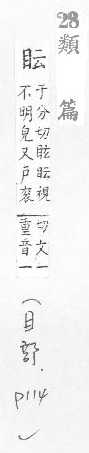 28
類篇
眃
于分切眃眃視
不明皃又戸袞
切文一
重音一
(目部.
p114